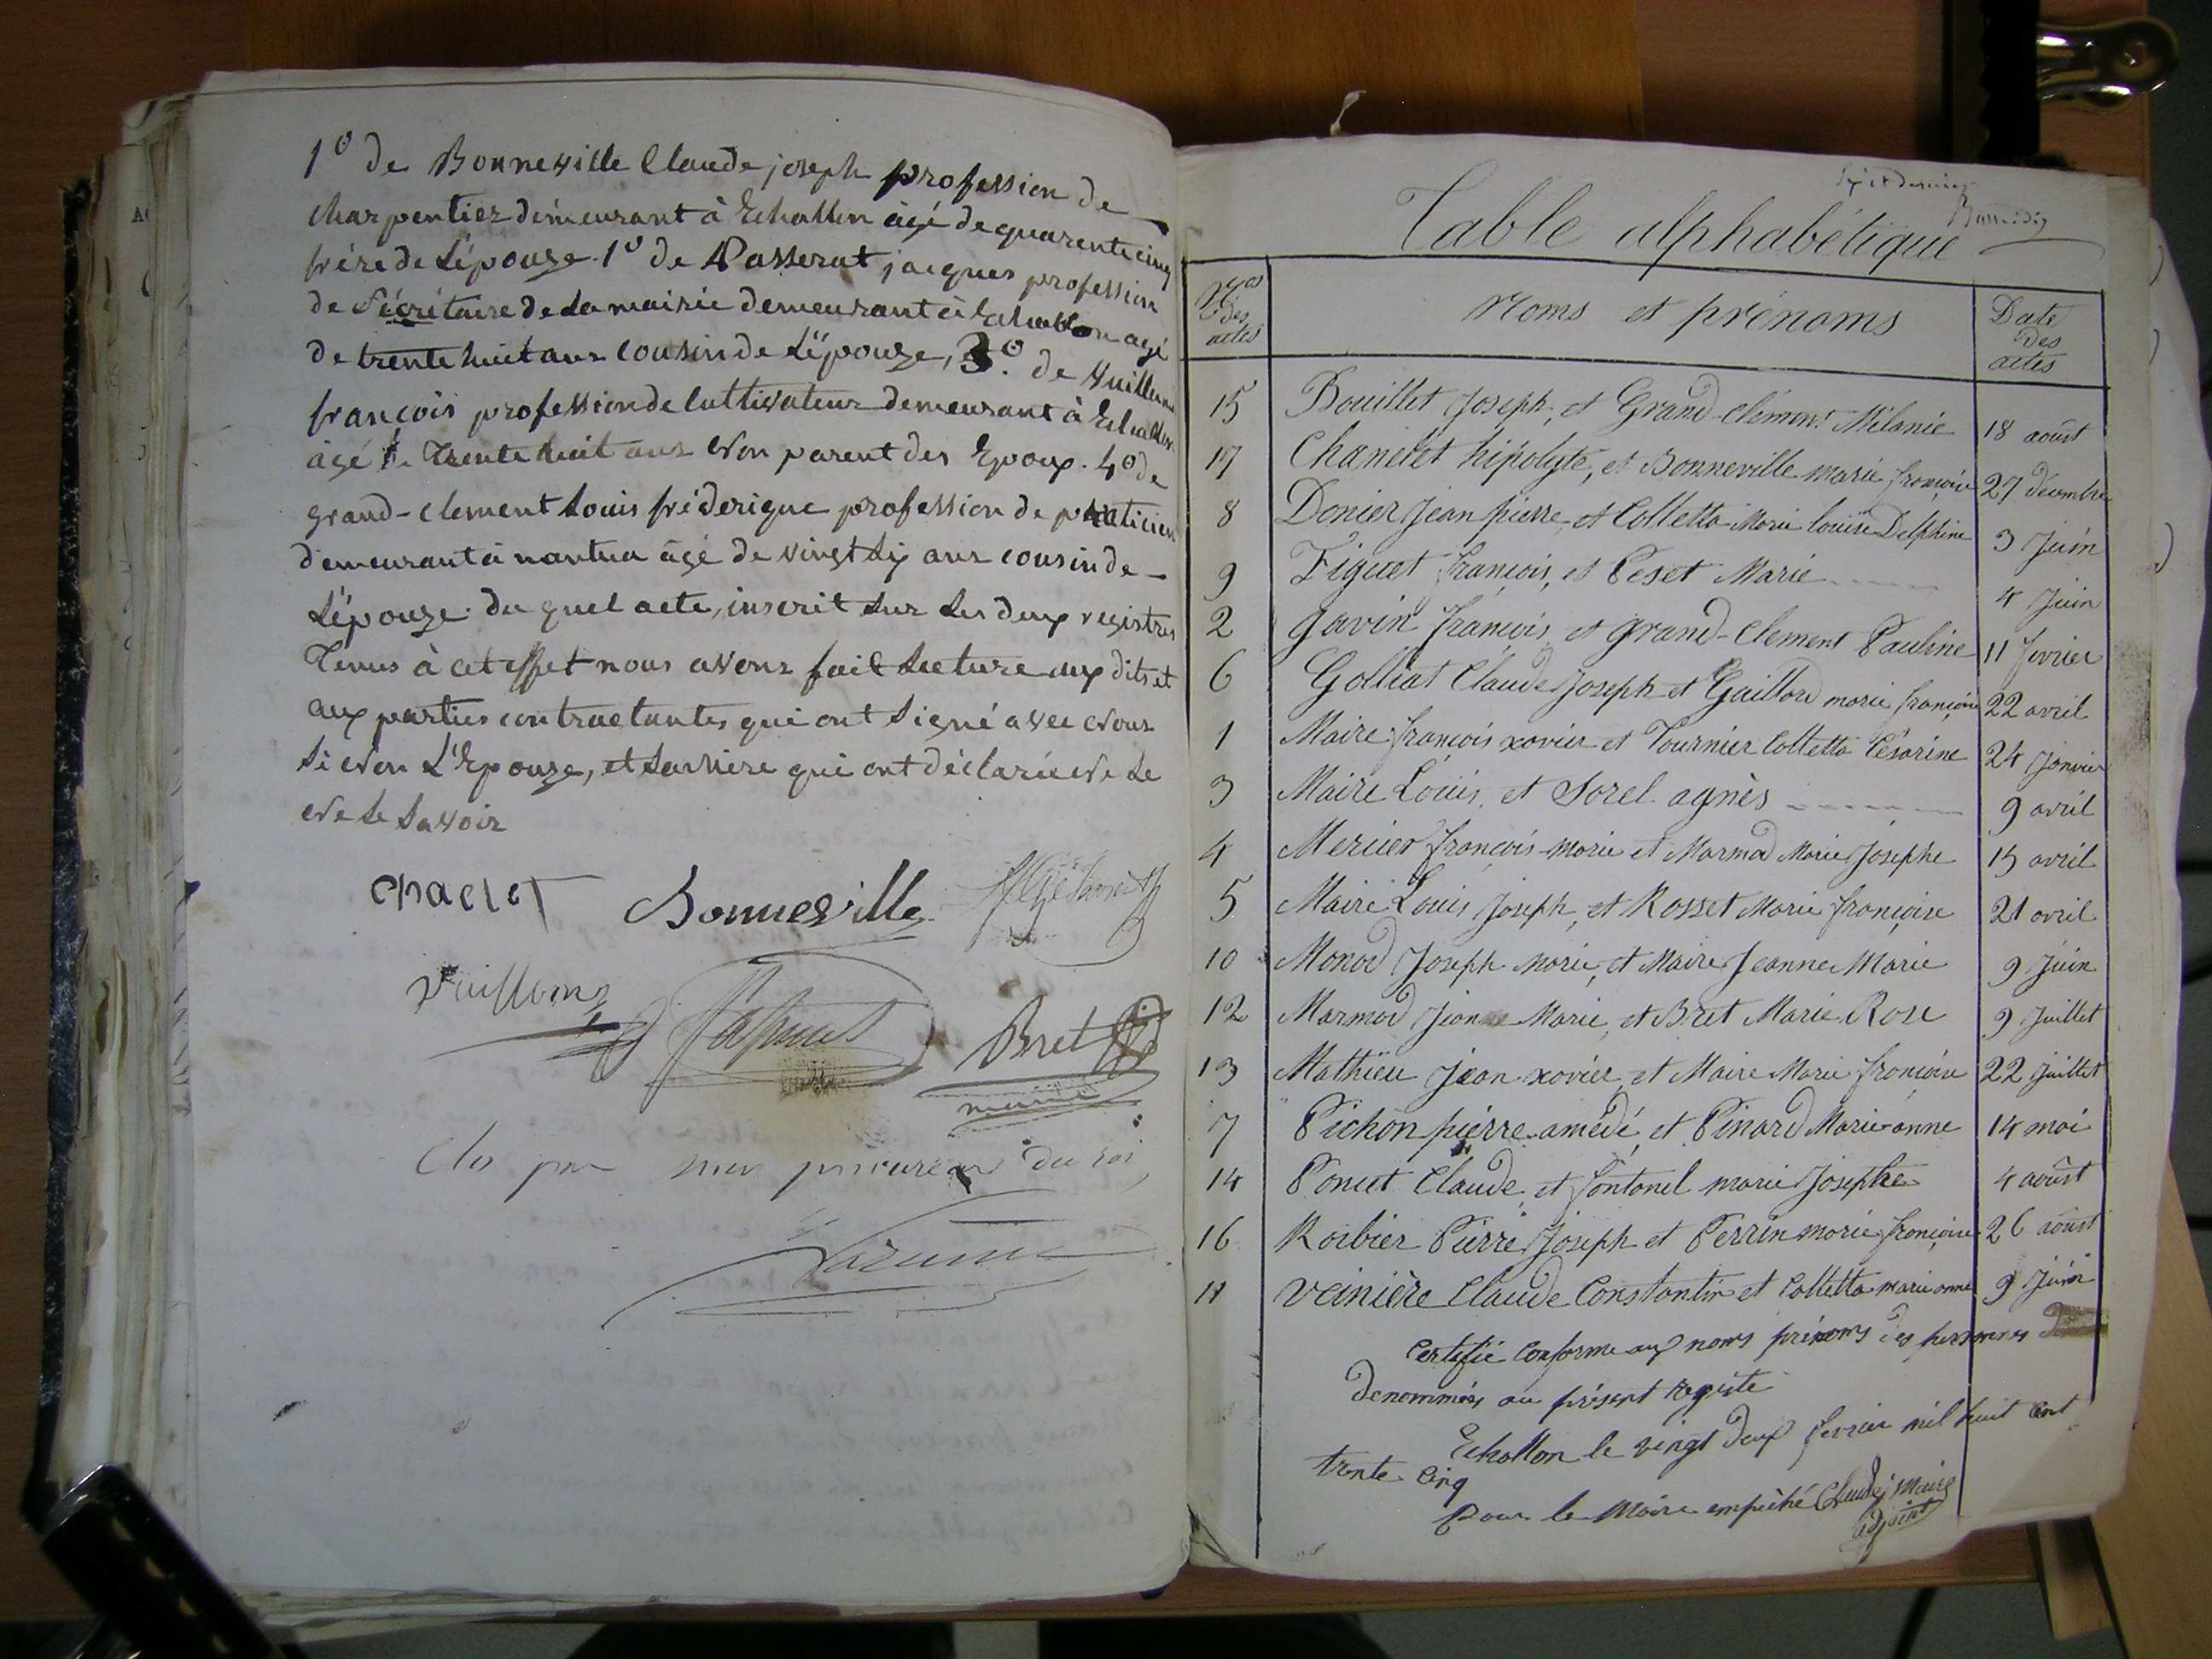 1º de Bonneville Claude joseph profession de
charpentier demeurant à Echallon âgé de quarente cinq
frére de L'épouze. 1º de Passerat jacques profession
de Sécrétaire de La mairie demeurant à Echallon agé
de trente huit ans cousin de L'épouze, 3º. de Vuillerme
françois profession de Cultivateur demeurant à Echallon
âgé de Trente huit ans Non parent des Epoux. 4º de
grand-clement Louis fréderique profession de praticien
demeurant à nantua âgé de vingt Six ans cousin de
L'épouze. du quel acte, inscrit Sur Les deux registres
Tenus à cet effet nous avons fait Lecture aux dits et
aux parties contractantes qui ont Signé avec Nous
Si Non L'Epouze, et Sa Mere qui ont déclarée Ne Le
Ne Le Savoir
Bonneville
Bret
maire
Clos par procureur du roi
Table alphabétique
Nos des actes
Noms et prénoms
Date des actes
15 Bouillet Joseph, et Grand-Clément Mélanie 18 août
17 Chanelet hipolyte, et Bonneville marie françoise 27 décembre
8 Donier Jean pierre et Colletta Marie louise Delphine 3 Juin
9 Figuet françois, et Peset Marie 4 Juin
2 Gavin françois, et Grand-Clement Pauline 11 fevrier
6 Golliat Claude Joseph et Gaillard marie françoise 22 avril
1 Maire françois xavier et Tournier Colletta Césarine 24 Janvier
3 Maire Louis, et Sorel agnès 9 avril
4 Mercier françois-marie et Marmod Marie Josephe 15 avril
5 Maire Louis Joseph, et Rosset Marie françoise 21 avril
10 Monod Joseph Marie, et Maire Jeanne Marie 9 Juin
12 Marmod Jean Marie, et Bret Marie Rose 9 Juillet
13 Mathieu Jean xavier, et Maire Marie françoise 22 Juillet
7 Pichon pierre amédé, et Pinard Marie-anne 14 mai
14 Poncet Claude, et fontanel marie Josephte 4 août
16 Rorbier Pierre Joseph et Perrin marie françoise 26 août
11 Veinière Claude Constantin et Colletta marie anne 9 Juin
Certifié Conforme aux noms prénoms des personnes
denommées au présent registe
Echallon le vingt deux fevrier mil huit cent
trente Cinq
Pour le Maire empêché Claude j Maire
adjoint